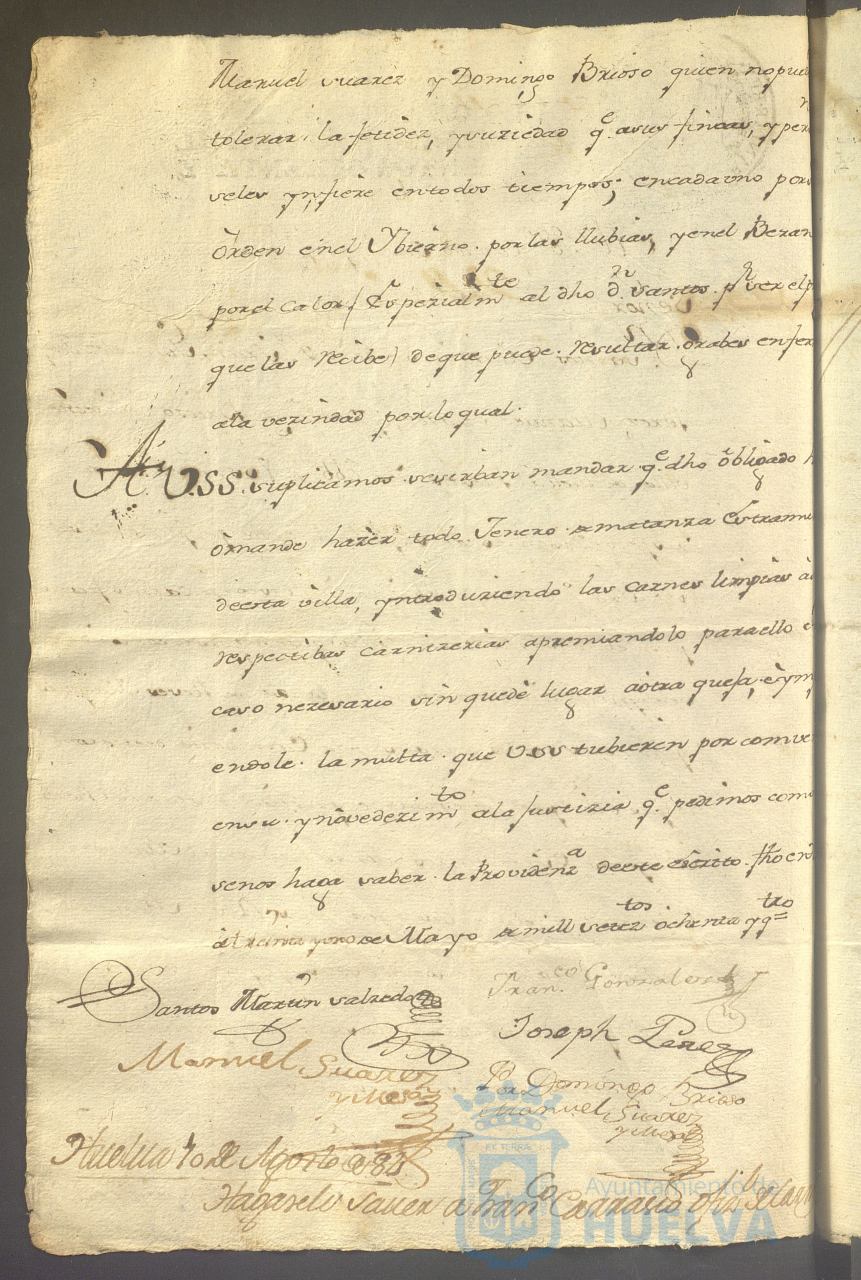 Manuel suarez y Domingo Brioso quien nopue
tolerar, la fetidez, ysuziedad q.e asus fincas, y per
seles ynfiere entodos tiempos; encadauno por s
òrden ènel Ybierno. por las llubias, yenel Beran
por el calor / Especialm.te al dho d.n santos. p.r ver el p
que las recibe) deque puede. resultar. grabes enfer
ala vezindad por lo qual.
A V.SS. suplicamos. sesirban mandar q.e dho obligado
òmande hazèr todo Jenero de matanza Estramu
deesta villa, yntroduziendo las carnes limpias à
respectibas carnizerias apremiandolo paraello è
caso nezesario sin quedè lugar àotra quefa, èym
endole. la multa. que VSS tubieren por combe
ensu. ynòvedezim.to ala Justizia q.e pedimos como
senos haga saber. la Providenz.a deeste escrito. fho en
à treinta yuno de Mayo de mill setez.tos ochenta yq.tro
Santos Martin salzedo
Fran.co Gonzales
Joseph Perez
Manuel Suarez
y Mesa
Por Domingo Brioso
Manuel Suarez
y Mesa
Huelua 10 de Agosto de 84
Hagaselo sauer a Fran.co Carrasco
Ayuntamiento de
HUELVA